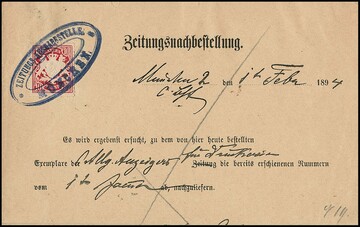 ZEITUNGS-AUSGABESTELLE.
Zeitungsnachbestellung.
München 2 den 1ten Febr 1894
Es wird ergebenst ersucht, zu dem von hier heute bestellten
Exemplare des Allg. Anzeigers für Druckereien Zeitung die bereits erschienenen Nummern
vom 1ten Januar ab, nachzuliefern.